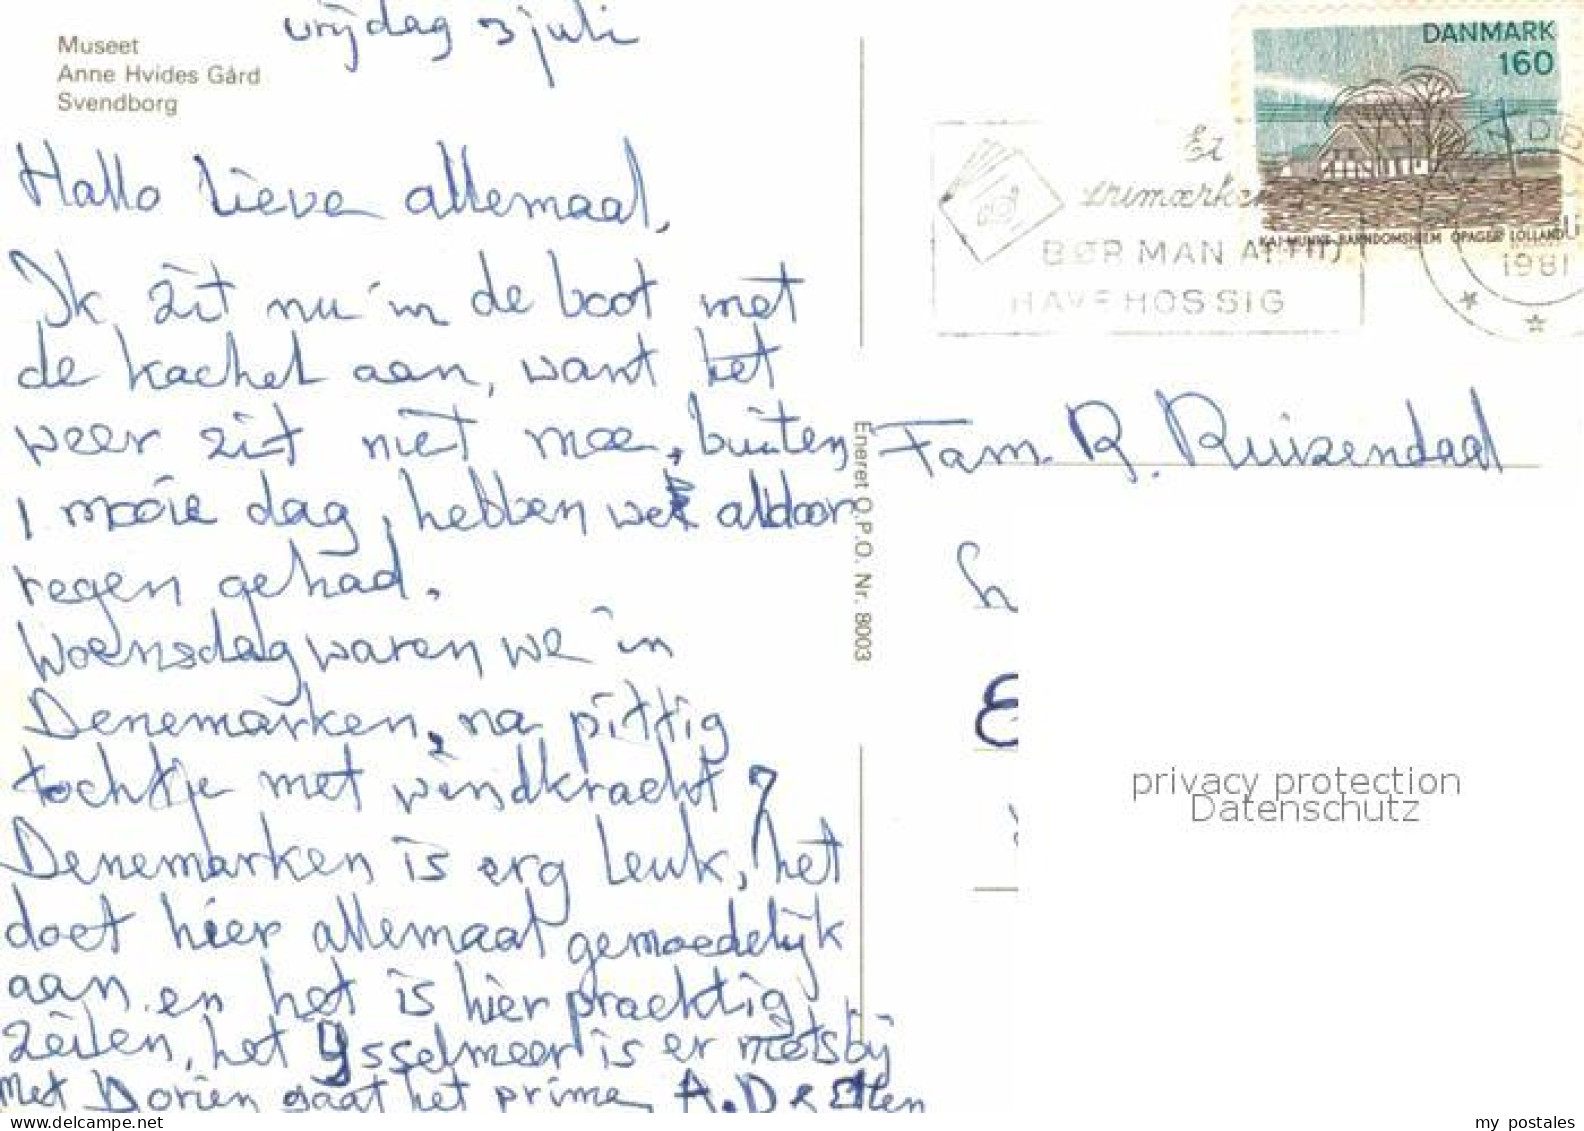 vrijdag 3 juli
Museet
Anne Hvides Gård
Svendborg
Hallo lieve allemaal,
Ik zit nu in de boot met
de kachel aan, want het
weer zit niet mee, buiten
1 mooie dag, hebben we aldoor
regen gehad.
Woensdag waren we in
Denemarken, na pittig
tochtje met windkracht 7
Denemarken is erg leuk, het
doet hier allemaal gemoedelijk
aan en het is hier prachtig
zeilen, het IJsselmeer is er niets bij
Met Dorien gaat het prima,
Eneret O.P.O. Nr. 8003
DANMARK
160
KAJ MUNKS BARNDOMSHJEM OPAGER LOLLAND
Et
frimærker
BØR MAN ALTID
HAVE HOS SIG
1981
Fam. R. Ruizendaal
privacy protection
Datenschutz
my postales